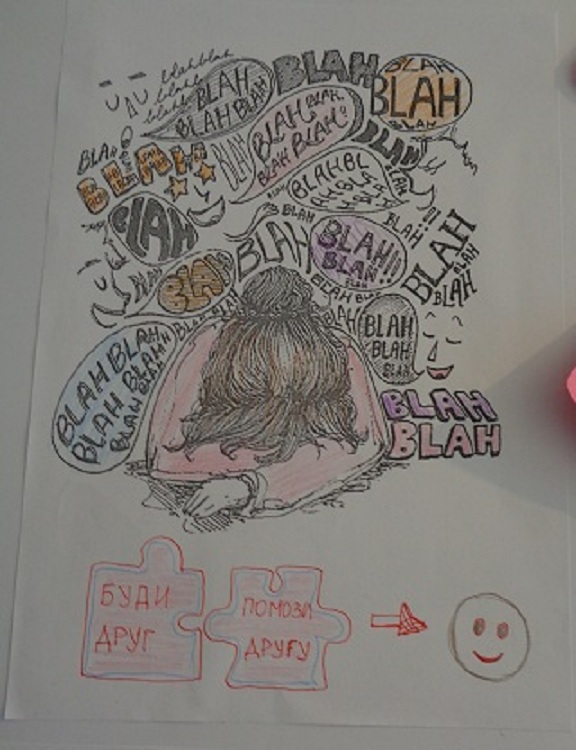 blahblah
blahb
blahb
BLAH
BLAH BLAH
BLAH
BLAH
BLAH
BLAH
BLAH
BLAH BLAH
BLAH
BLAH
BLAH
BLAH
BLAH
BLAH
BLAH!!
BLAH
BLAH
BLAH
BLAH
BLAH
BLAH
BLAH
BLAH
BLAH BLAH
BLAH BLAH
BLAH BLAH
BLAH
BLAH
BLAH
БУДИ
ДРУГ
ПОМОЗИ
ДРУГУ